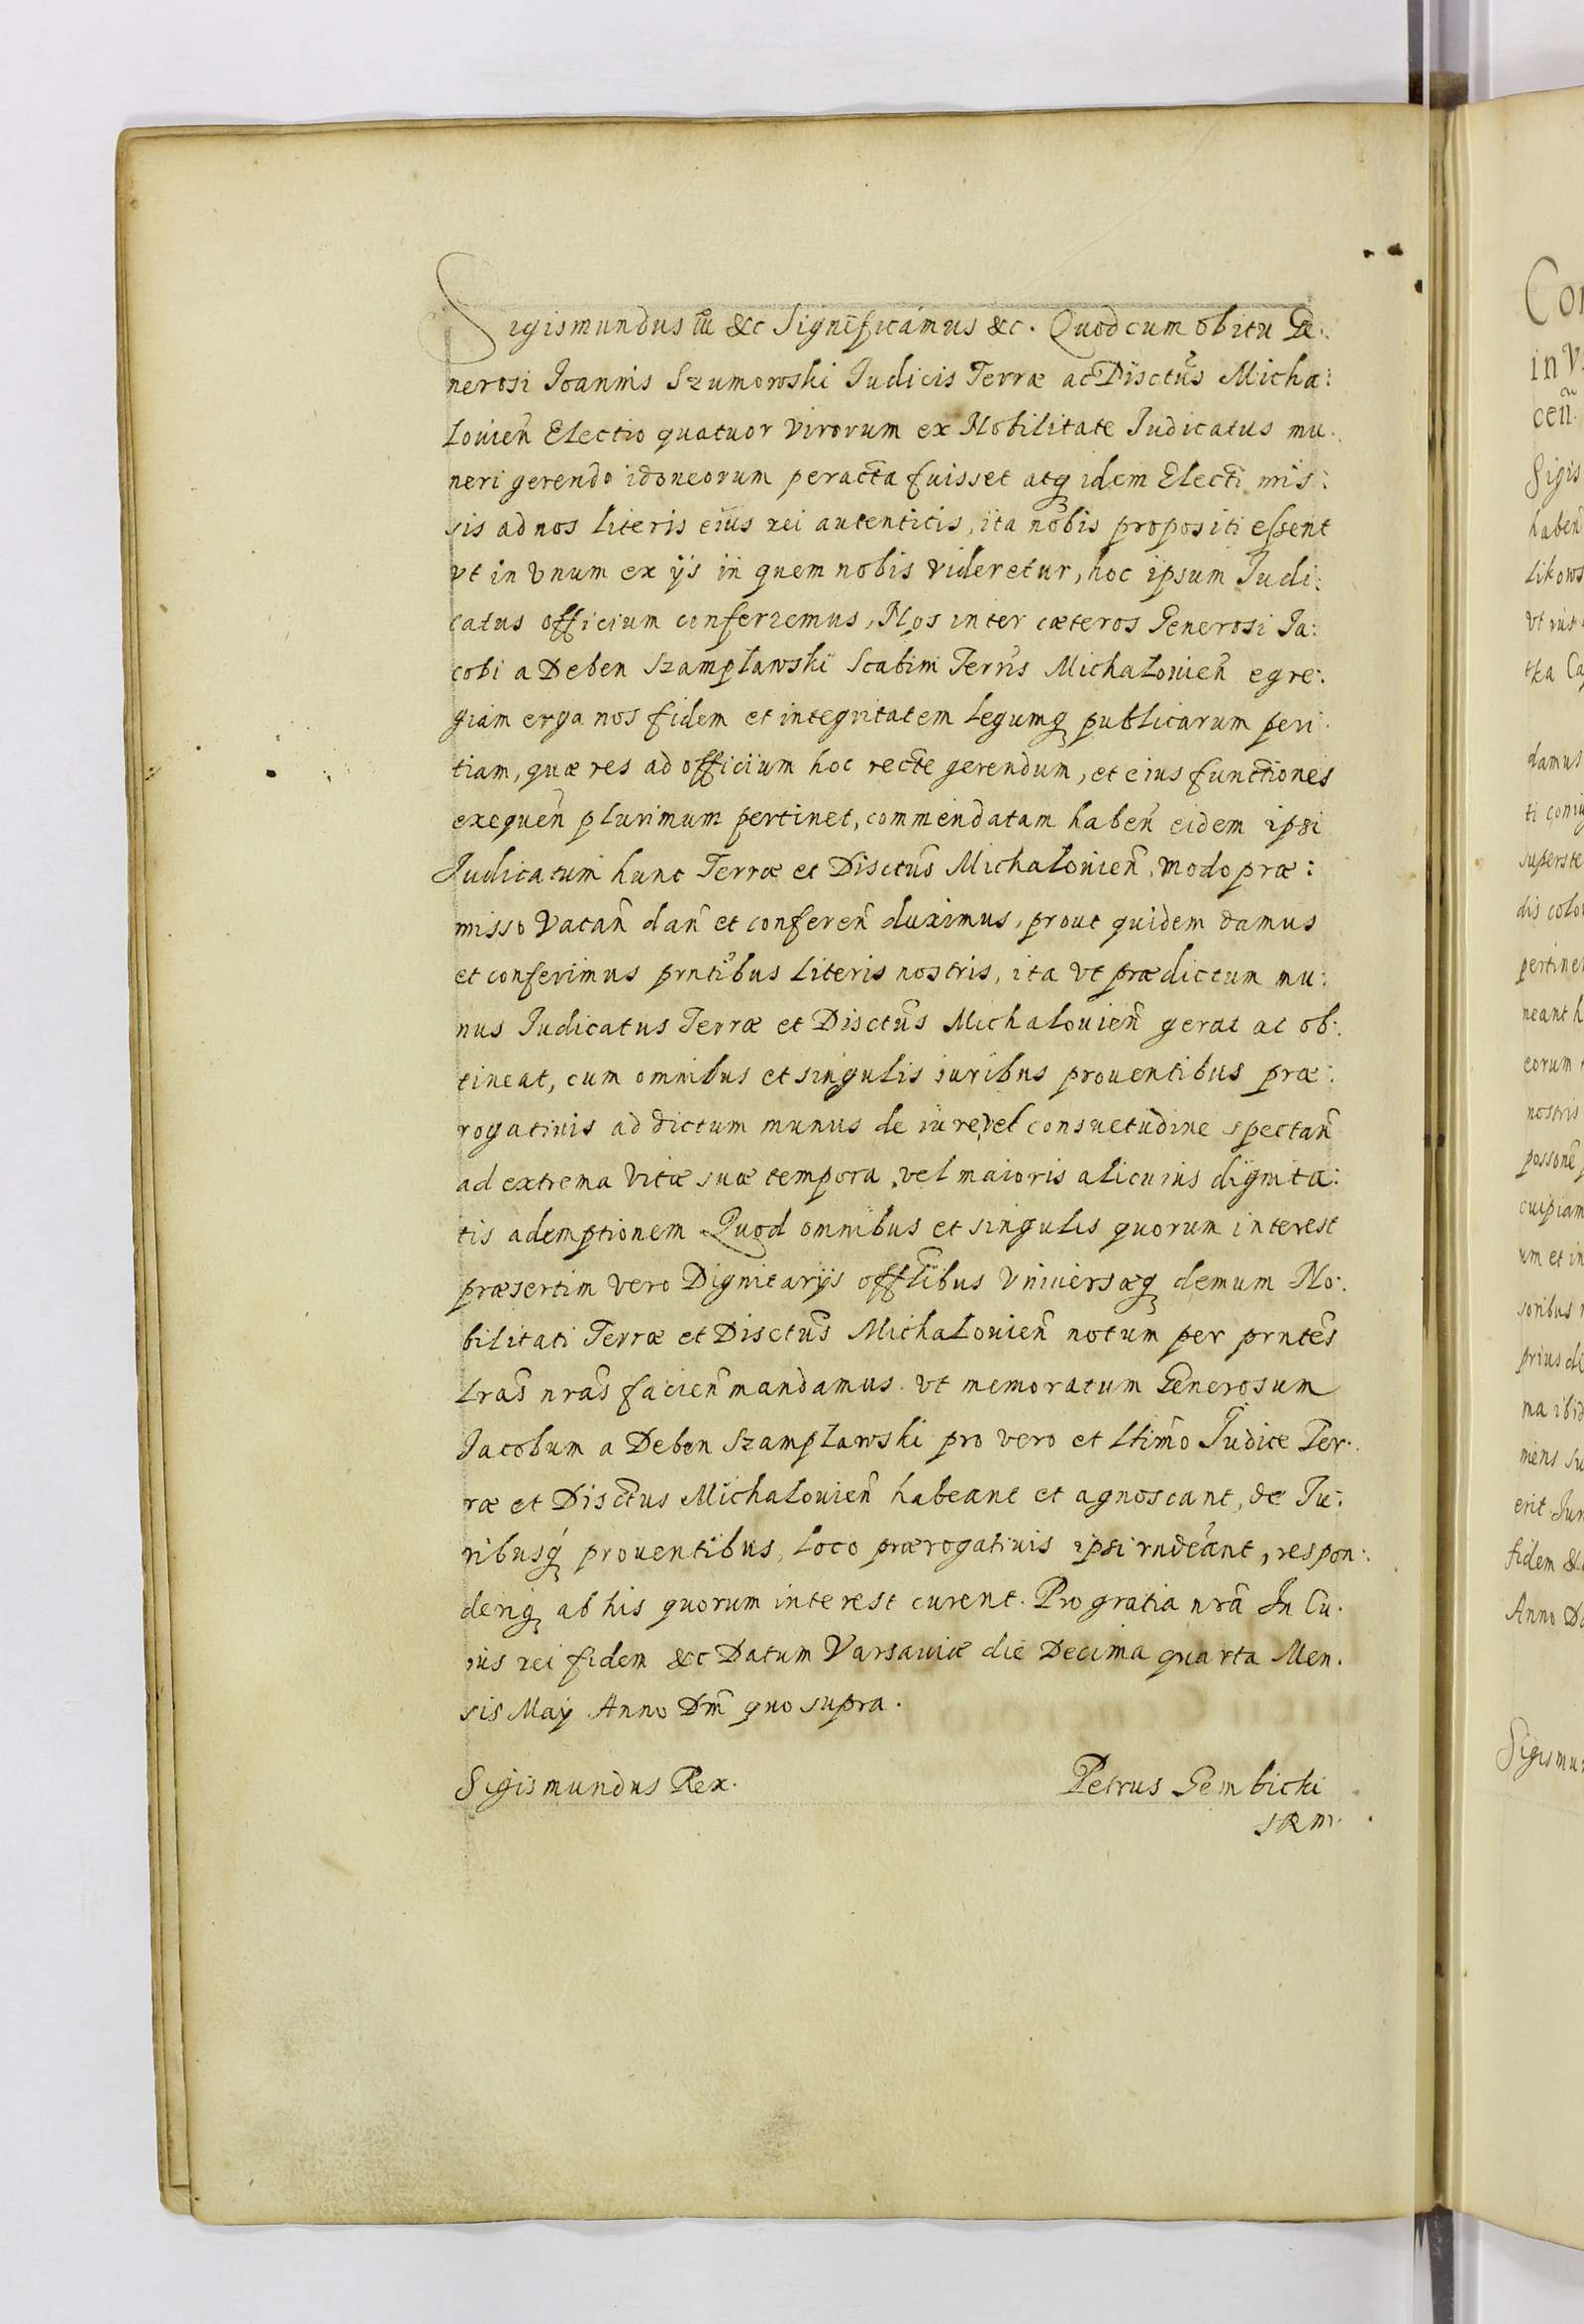 Sigismundus iii &c Significamus &c. Quod cum obitu Ge:
nerosi Joannis Szumowski Judicis Terræ ac Disctus Micha:
louien Electio quatuor virorum ex Nobilitate Judicatus mu.
neri gerendo idoneorum peracta fuisset atq idem Electi mis:
sis ad nos literis eius rei autenticis, ita nobis propositi essent
vt in vnum ex ijs in quem nobis videretur, hoc ipsum Judi:
catus officium conferremus, Nos inter cæteros Generosi Ja:
cobi a Deben Szampławski Scabini Terris Michalouien egre:
giam erga nos fidem et integritatem legumq publicarum peri:
tiam, quæ res ad officium hoc recte gerendum, et eius functiones
exequen plurimum pertinet, commendatam haben eidem ipsi
Judicatum hunc Terræ et Disctus Michalouien, modo præ:
misso vacan dan et conferen duximus, prout quidem damus
et conferimus pntibus literis nostris, ita vt prædictum mu:
nus Judicatus Terræ et Disctus Michalouien gerat ac ob:
tineat, cum omnibus et singulis iuribus prouentibus præ:
rogatiuis ad dictum munus de iure vel consuetudine spectan
ad extrema vitæ suæ tempora, vel maioris alicuius dignita:
tis ademptionem Quod omnibus et singulis quorum interest
præsertim vero Dignitarijs offlibus vniuersæq demum No:
bilitati Terræ et Disctus Michalouien notum per prntes
lras nras facien mandamus. vt memoratum Generosum
Jacobum a Deben Szampławski pro vero et ltimo Judice Ter.
ræ et Disctus Michalouien habeant et agnoscant, de Ju:
ribusq prouentibus, loco prærogatiuis ipsi rndeant, respon:
deriq ab his quorum interest curent. Pro gratia nra In Cu.
ius rei fidem &c Datum Varsauiæ die Decima quarta Men.
sis May Anno Dni quo supra.
Sigismundus Rex.
Petrus Gembicki
SRM.
Con
in V
cen.
Sigis
haben
likows
vt ius
tka Ca
damus
ti coniu
superste
dis colo
pertine
neant h
eorum
nostris
possone
cuipiam
um et in
soribus
prius di
ma ibid
mens su
erit Jur
fidem &c
Anno Do
Sigismu